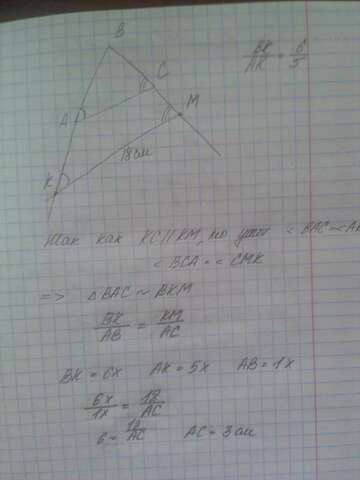 B
BK/AK = 6/5
C
A
M
K
18 см
Так как KC||KM, то угол < BAC = < AK
< BCA = < CMK
=> Δ BAC ~ BKM
BK/AB = KM/AC
BK = 6x AK = 5x AB = 1x
6x/1x = 18/AC
6 = 18/AC AC = 3 см